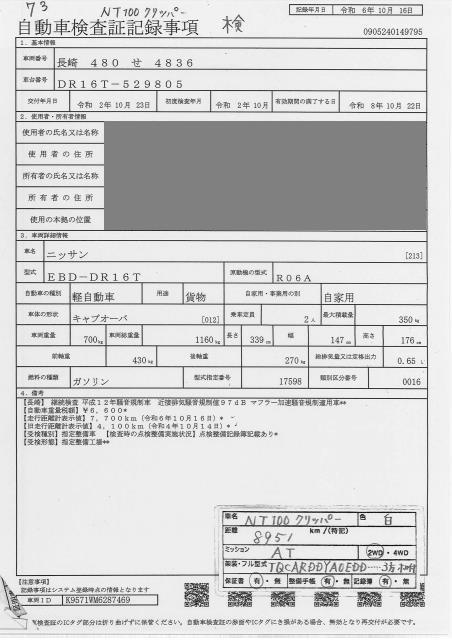 73 NT100 クリッパー
記録年月日 令和 6年10月16日
自動車検査証記録事項 検
0905240149795
1. 基本情報
車両番号 長崎 480 せ 4836
車台番号 DR16T-529805
交付年月日 令和 2年10月23日 初度検査年月 令和 2年10月 有効期間の満了する日 令和 8年10月22日
2. 使用者・所有者情報
使用者の氏名又は名称
使用者の住所
所有者の氏名又は名称
所有者の住所
使用の本拠の位置
3. 車両詳細情報
車名 ニッサン [213]
型式 EBD-DR16T 原動機の型式 R06A
自動車の種別 軽自動車 用途 貨物 自家用・事業用の別 自家用
車体の形状 キャブオーバ [012] 乗車定員 2人 最大積載量 350kg
車両重量 700kg 車両総重量 1160kg 長さ 339cm 幅 147cm 高さ 176cm
前軸重 430kg 後軸重 270kg 総排気量又は定格出力 0.65L
燃料の種類 ガソリン 型式指定番号 17598 類別区分番号 0016
4. 備考
【長崎】 継続検査 平成12年騒音規制車 近接排気騒音規制値97dB マフラー加速騒音規制適用車**
【自動車重量税額】¥6,600*
【走行距離計表示値】7,700km(令和6年10月16日)*
【旧走行距離計表示値】4,100km(令和4年10月14日)*
【受検種別】指定整備車 【検査時の点検整備実施状況】点検整備記録簿記載あり*
【受検形態】指定整備工場**
車名 NT100 クリッパー 色 白
距離 8951 km/(特記)
ミッション AT 2WD・4WD
架装・フル型式 TQCARDDYA0EDD-----
保証書 有・無 整備手帳 有・無 記録簿 有・無
【注意事項】
記録事項はシステム登録時点の情報となります
車両ID K9571WM6287469
検査証のICタグ部分は折り曲げずに保管ください。自動車検査証の券面やICタグにき損がある場合、無効となり再交付が必要です。